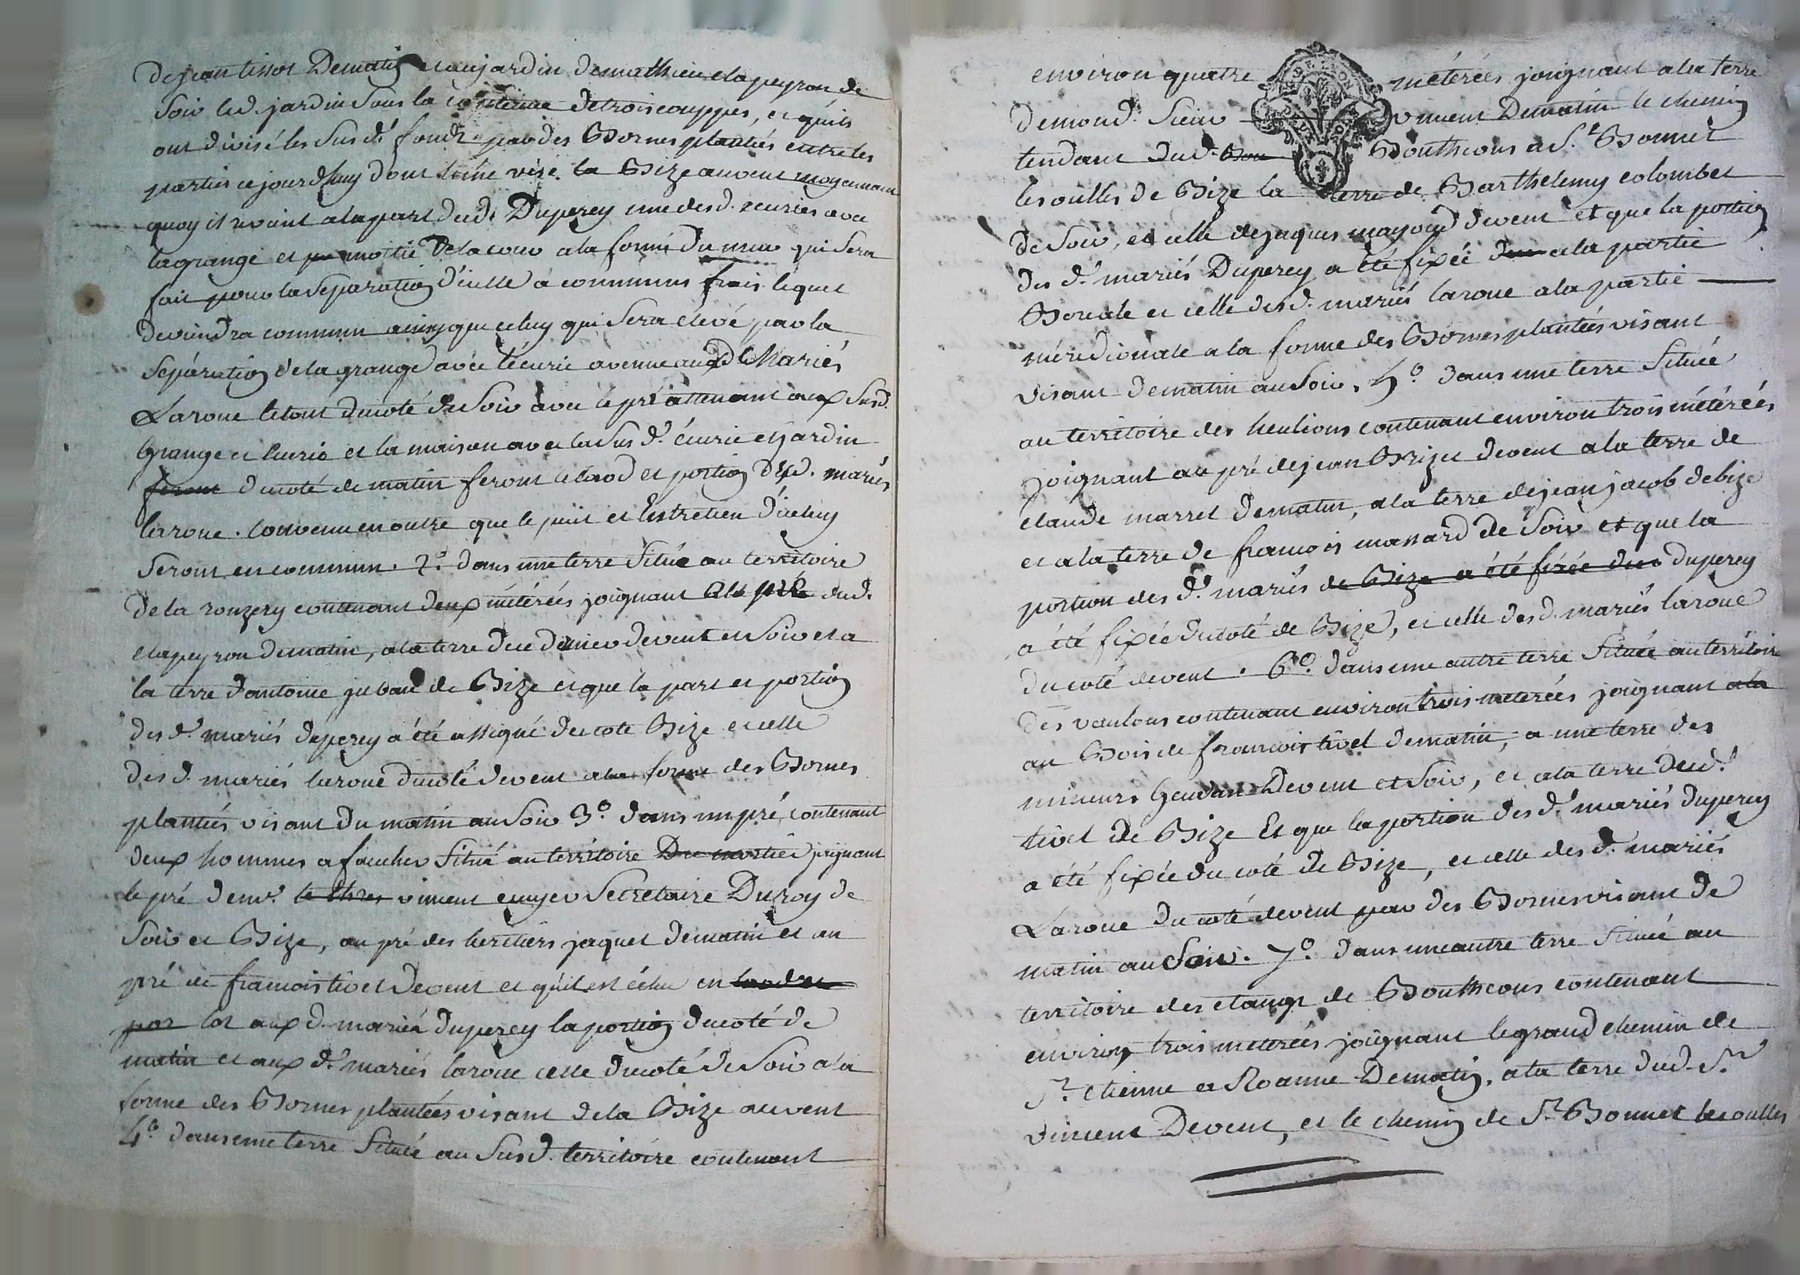 de jean tissot Dematin et au jardin de mathieu clapeyron de
soir led. jardin sous la contenue de trois couppes, et qu'ils
ont divisé les susd. fonds par des Bornes plantées entre les
parties ce jourd'huy dont visé la Bize au vent moyennant
quoy il revient a la part dud. Duperey une desd. écuries avec
la grange et moitié de la cour a la forme du mur qui sera
fait pour la separation d'icelle a communs frais lequel
deviendra commun ainsy que celuy qui sera élevé par la
séparation de la grange avec l'écurie avenue aux d. Mariés
Laroue le tout du côté du soir avec le pré attenant aux susd.
grange et écurie et la maison avec la sus d. écurie et jardin
feront du coté de matin feront le lod et portion desd. mariés
laroue. convenu en outre que le puit et l'entretien d'iceluy
seront en commun. 2.° dans une terre située au territoire
de la ronzery contenant deux métérées joignant a le pré dud.
clapeyron dematin, a la terre devent et soir et a
la terre d'antoine jubau de Bize et que la part et portion
des d. mariés duperey a été assigné du cote Bize et celle
des d. mariés laroue du coté devent a la forme des Bornes
plantées visant du matin au soir 3.° dans un pré contenant
deux hommes a faucher situé au territoire joignant
le pré de mr. vincent ecuyer secretaire Du roy de
soir et Bize, au pré des heritiers jaquet dematin et au
pré de francois tivet devent et qu'il est échu en
par lot aux d. mariés duperey la portion du coté de
matin et aux d. mariés laroue celle du coté de soir a la
forme des Bornes plantées visant de la Bize au vent
4.° dans une terre située au susd. territoire contenant
environ quatre métérées joignant a la terre
demond. sieur vincent Dematin le chemin
tendant dud. Bou Bouthéons a St. Bonnet
les oulles de Bize la terre de Barthelemy colombet
de soir, et celle de jaques mayoud devent et que la portion
des d. mariés Duperey a été fixée a la partie
Boreale et celle des d. mariés laroue a la partie
méridionale a la forme des Bornes plantées visant
visant dematin au soir. 5.° dans une terre située
au territoire des heulions contenant environ trois métérées
joignant au pré de jean Brizet devent a la terre de
claude marret dematin, a la terre de jean jacob de bize
et a la terre de francois massard de soir et que la
portion des d. mariés de Bize a été fixée duperey
a été fixée du coté de Bize, et celle des d. mariés laroue
du coté devent. 6.° dans une autre terre située au territoire
des vaulons contenant environ trois meterées joignant a la
au Bois de francois tivet dematin, a une terre des
mineurs Devent et soir, et a la terre dud.
tivet de Bize Et que la portion des d. mariés duperey
a été fixée du coté de Bize, et celle des d. mariés
Laroue du coté devent par des Bornes visant de
matin au Soir. 7.° dans une autre terre située au
territoire des etangs de Bouthéons contenant
environ trois meterées joignant le grand chemin de
St. Etienne a Roanne Dematin, a la terre dud. Sr.
vincent Devent, et le chemin de St. Bonnet les oulles